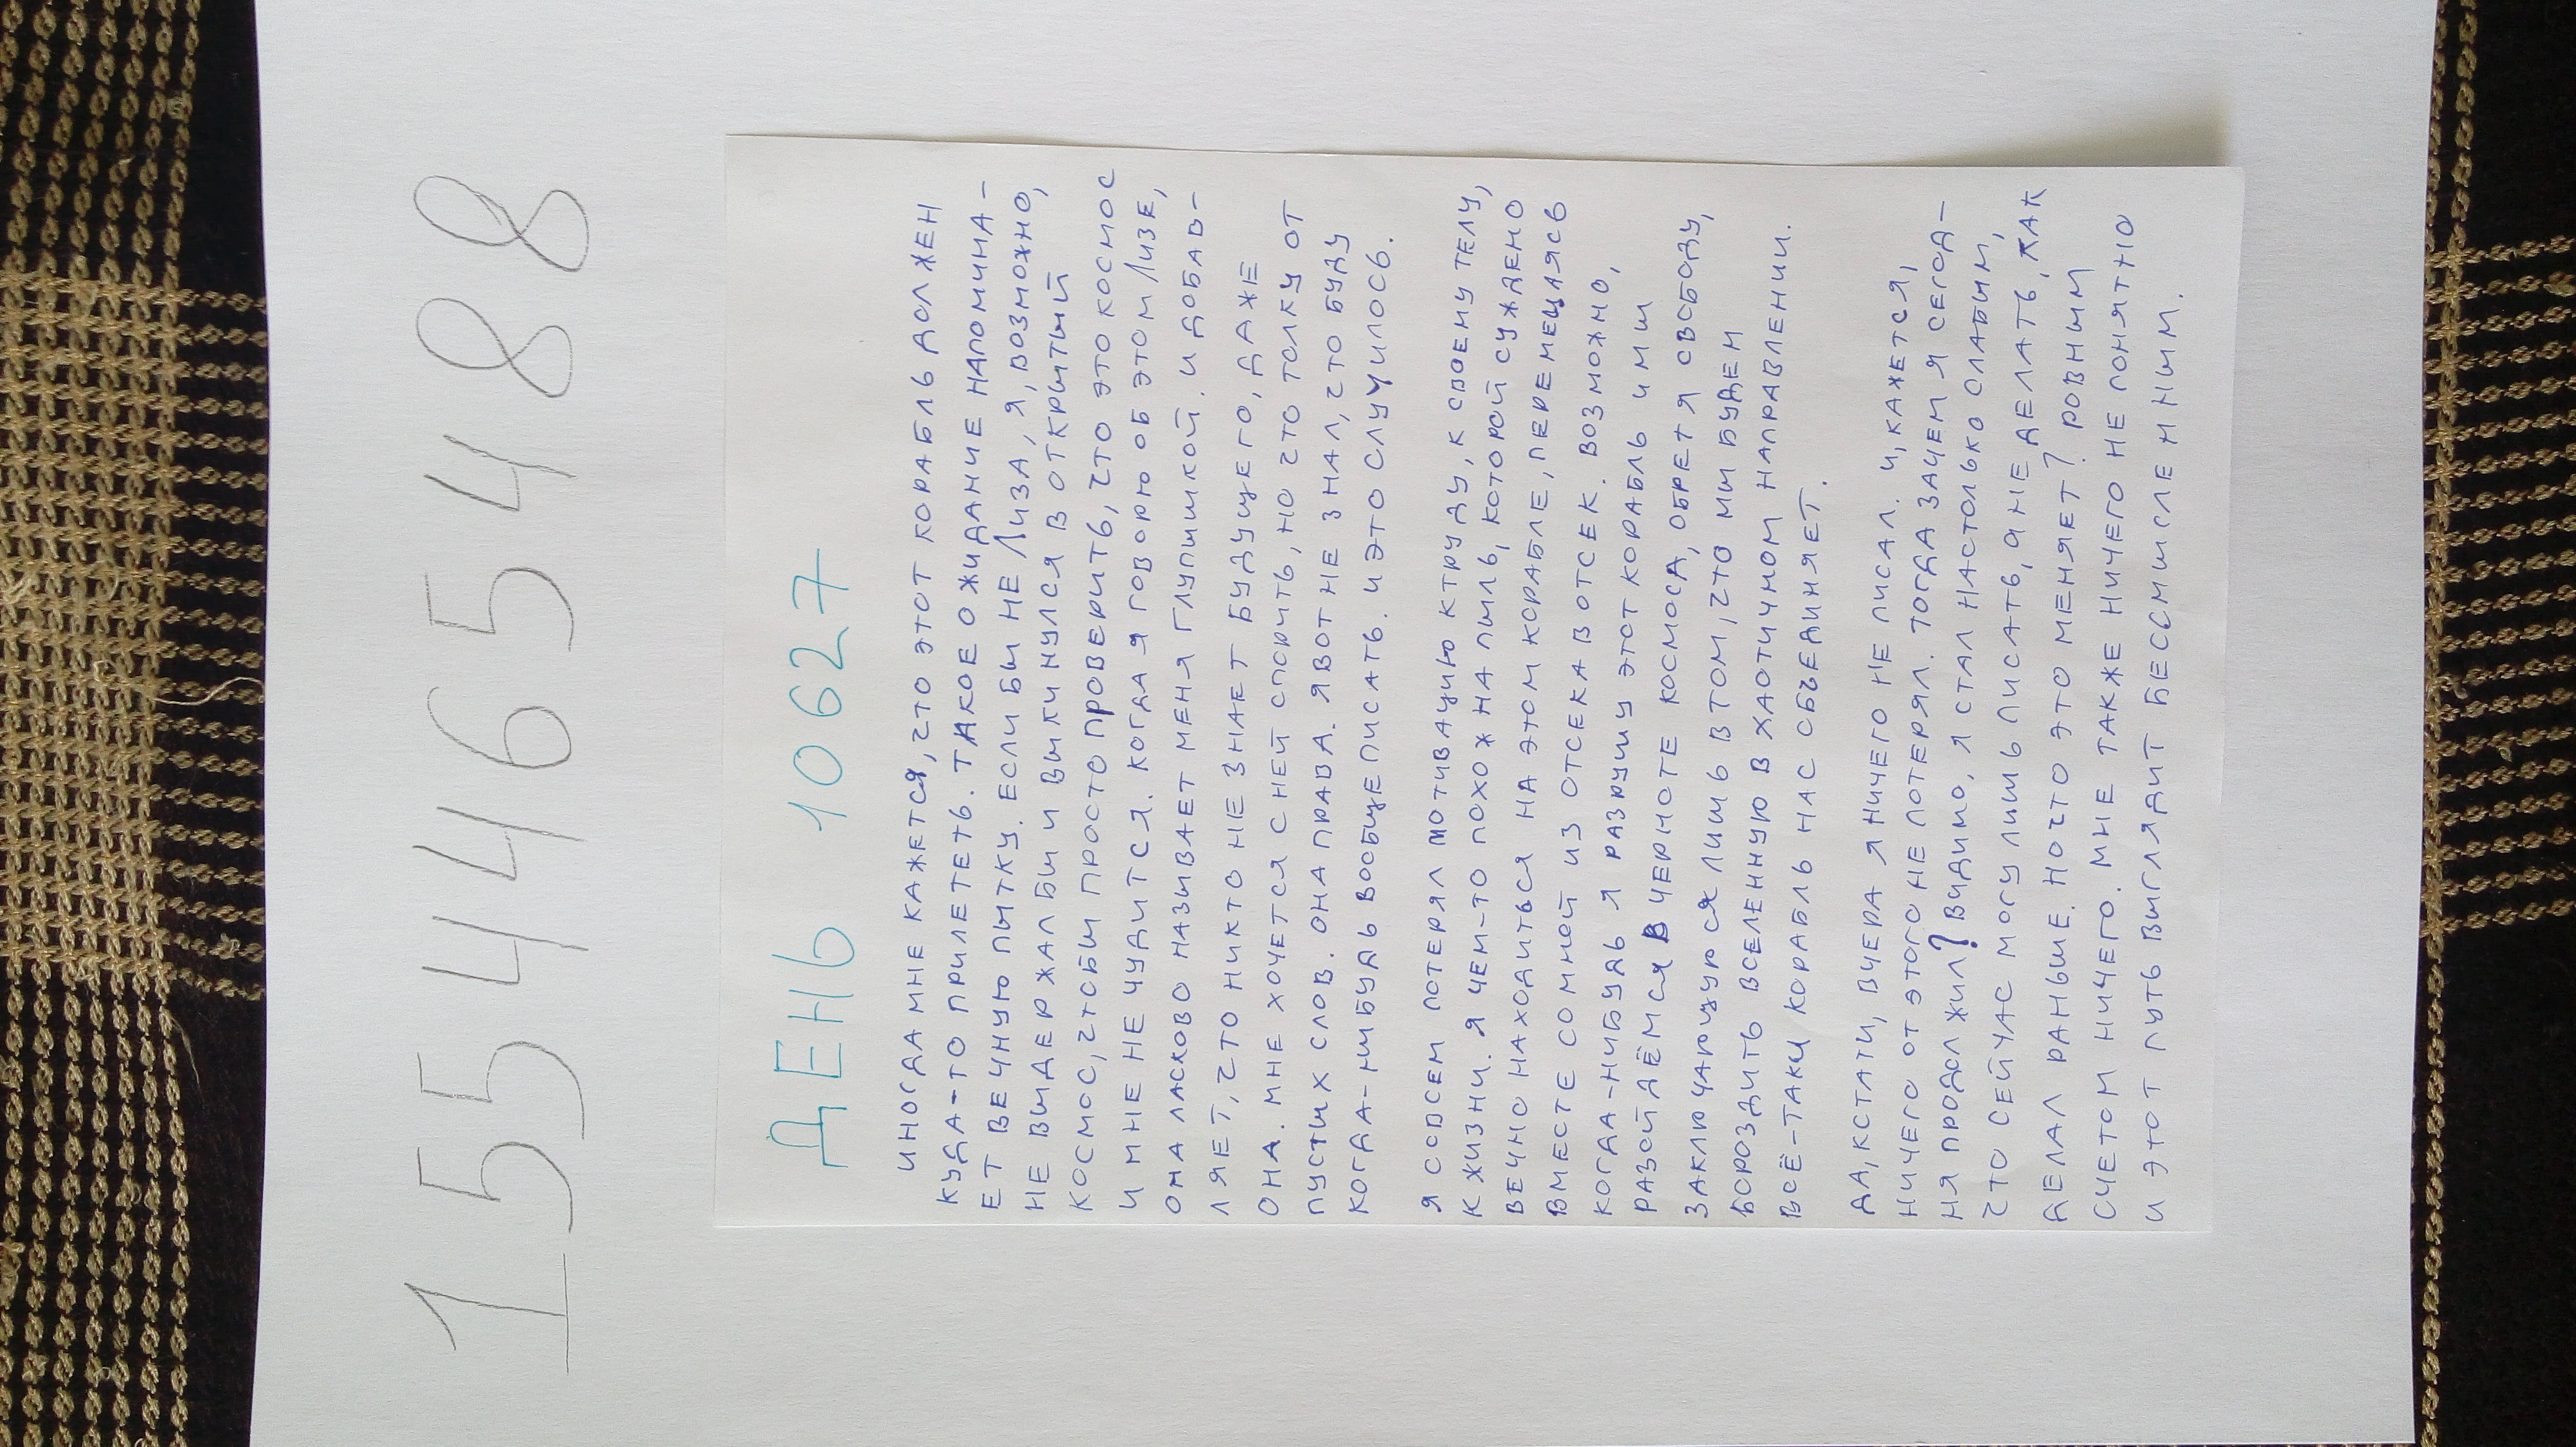 1554465488
ДЕНЬ 10627
ИНОГДА МНЕ КАЖЕТСЯ, ЧТО ЭТОТ КОРАБЛЬ ДОЛЖЕН
КУДА-ТО ПРИЛЕТЕТЬ. ТАКОЕ ОЖИДАНИЕ НАПОМИНА-
ЕТ ВЕЧНУЮ ПЫТКУ. ЕСЛИ БЫ НЕ ЛИЗА, Я, ВОЗМОЖНО,
НЕ ВЫДЕРЖАЛ БЫ И ВЫКИНУЛСЯ В ОТКРЫТЫЙ
КОСМОС, ЧТОБЫ ПРОСТО ПРОВЕРИТЬ, ЧТО ЭТО КОСМОС
И МНЕ НЕ ЧУДИТСЯ. КОГДА Я ГОВОРЮ ОБ ЭТОМ ЛИЗЕ,
ОНА ЛАСКОВО НАЗЫВАЕТ МЕНЯ ГЛУПЫШКОЙ. И ДОБАВ-
ЛЯЕТ, ЧТО НИКТО НЕ ЗНАЕТ БУДУЩЕГО, ДАЖЕ
ОНА. МНЕ ХОЧЕТСЯ С НЕЙ СПОРИТЬ, НО ЧТО ТОЛКУ ОТ
ПУСТЫХ СЛОВ. ОНА ПРАВА. Я ВОТ НЕ ЗНАЛ, ЧТО БУДУ
КОГДА-НИБУДЬ ВООБЩЕ ПИСАТЬ. И ЭТО СЛУЧИЛОСЬ.
Я СОВСЕМ ПОТЕРЯЛ МОТИВАЦИЮ К ТРУДУ, К СВОЕМУ ТЕЛУ,
К ЖИЗНИ. Я ЧЕМ-ТО ПОХОЖ НА ПЫЛЬ, КОТОРОЙ СУЖДЕНО
ВЕЧНО НАХОДИТЬСЯ НА ЭТОМ КОРАБЛЕ, ПЕРЕМЕЩАЯСЬ
ВМЕСТЕ СО МНОЙ ИЗ ОТСЕКА В ОТСЕК. ВОЗМОЖНО,
КОГДА-НИБУДЬ Я РАЗРУШУ ЭТОТ КОРАБЛЬ И МЫ
РАЗОЙДЁМСЯ В ЧЕРНОТЕ КОСМОСА, ОБРЕТЯ СВОБОДУ,
ЗАКЛЮЧАЮЩУЮСЯ ЛИШЬ В ТОМ, ЧТО МЫ БУДЕМ
БОРОЗДИТЬ ВСЕЛЕННУЮ В ХАОТИЧНОМ НАПРАВЛЕНИИ.
ВСЁ-ТАКИ КОРАБЛЬ НАС ОБЪЕДИНЯЕТ.
ДА, КСТАТИ, ВЧЕРА Я НИЧЕГО НЕ ПИСАЛ. И, КАЖЕТСЯ,
НИЧЕГО ОТ ЭТОГО НЕ ПОТЕРЯЛ. ТОГДА ЗАЧЕМ Я СЕГОД-
НЯ ПРОДОЛЖИЛ? ВИДИМО, Я СТАЛ НАСТОЛЬКО СЛАБЫМ,
ЧТО СЕЙЧАС МОГУ ЛИШЬ ПИСАТЬ, А НЕ ДЕЛАТЬ, КАК
ДЕЛАЛ РАНЬШЕ. НО ЧТО ЭТО МЕНЯЕТ? РОВНЫМ
СЧЕТОМ НИЧЕГО. МНЕ ТАКЖЕ НИЧЕГО НЕ ПОНЯТНО
И ЭТОТ ПУТЬ ВЫГЛЯДИТ БЕССМЫСЛЕННЫМ.